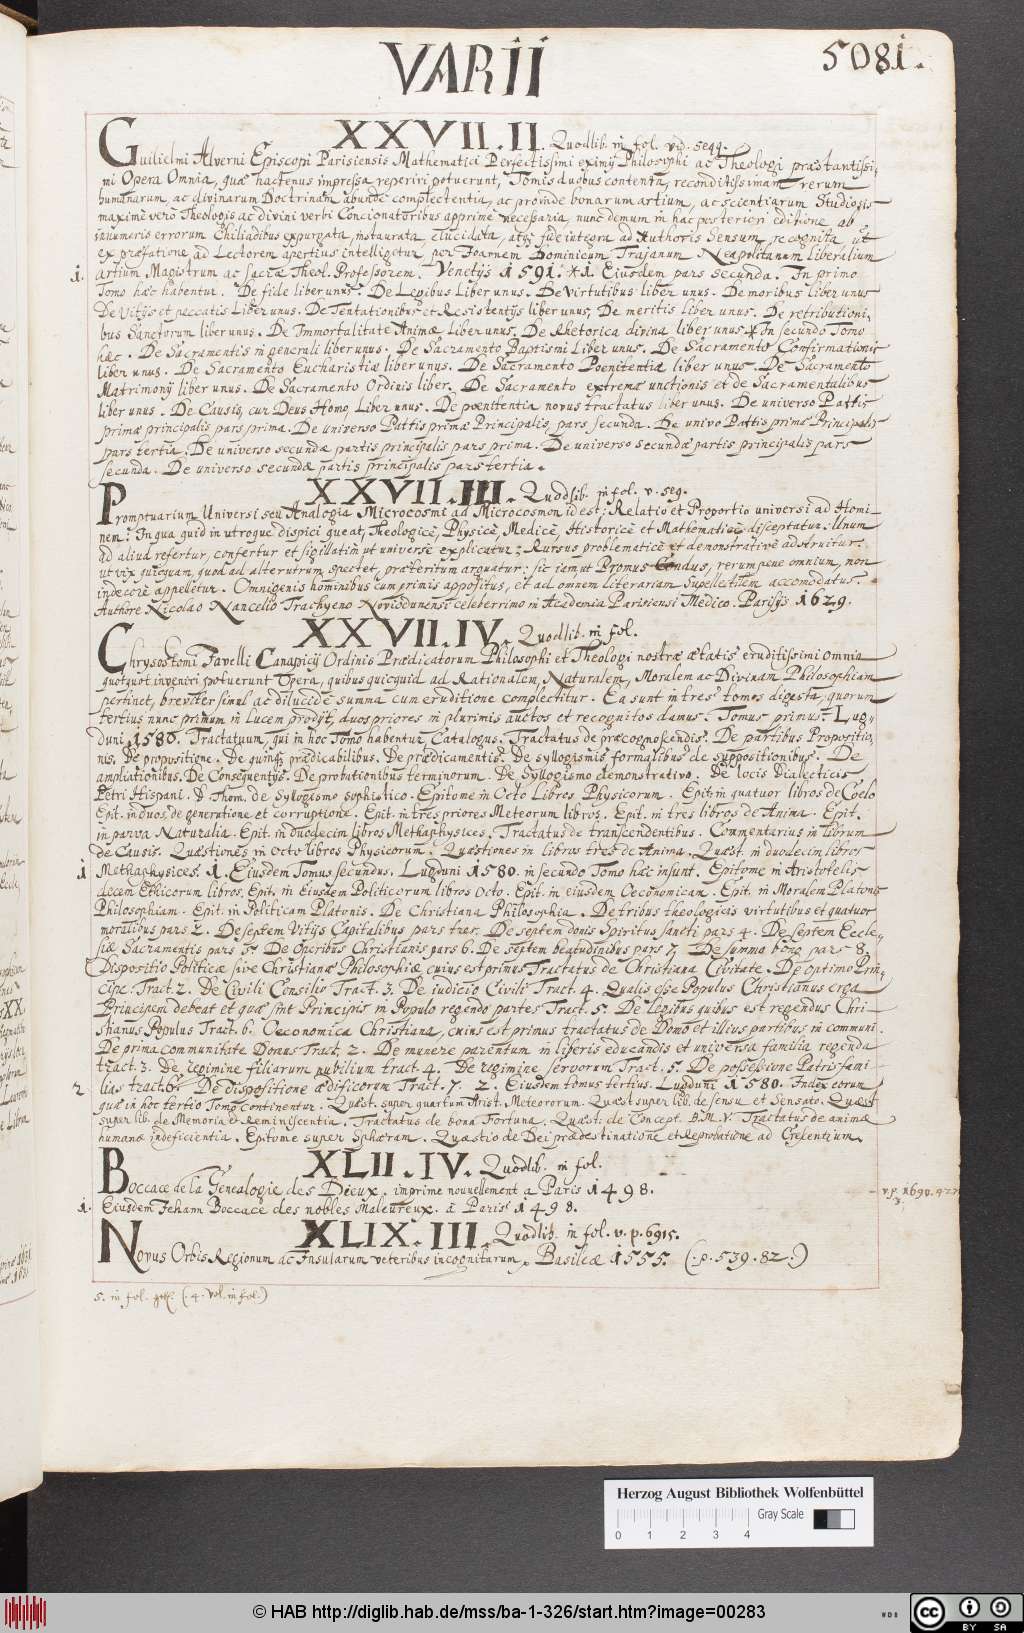 VARII
5081.
XXVII.II. Quodlib. in fol. vid. seqq.
Guilielmi Alverni Episcopi Parisiensis Mathematici Perfectissimi eximij Philosophi ac Theologi præstantissi-
mi Opera Omnia, quæ hactenus impressa reperiri potuerunt, Tomis duobus contenta, reconditissimam rerum
humanarum, ac divinarum Doctrinam abunde complectentia, ac proinde bonarum artium, ac scientiarum Studiosis
maxime vero Theologis ac divini verbi Concionatoribus apprime necessaria, nunc demum in hac posteriori editione ab
innumeris errorum Chiliadibus expurgata, instaurata, elucidata, atq; fide integra ad Authoris Sensum recognita ut
ex præfatione ad Lectorem apertius intelligetur per Joannem Dominicum Trajanum Neapolitanum liberalium
1. artium Magistrum ac sacræ Theol. Professorem. Venetijs 1591. *1. Eiusdem pars secunda. In primo
Tomo hæc habentur. De fide liber unus. De Legibus Liber unus. De virtutibus liber unus. De moribus liber unus
De Vitijs et peccatis Liber unus. De Tentationibus et Resistentijs liber unus. De meritis liber unus. De retributioni-
bus Sanctorum liber unus. De Immortalitate Animæ Liber unus. De Rhetorica divina liber unus * In secundo Tomo
hæc. De Sacramentis in generali liber unus. De Sacramento Baptismi Liber unus. De Sacramento Confirmationis
liber unus. De Sacramento Eucharistiæ liber unus. De Sacramento Poenitentiæ liber unus. De Sacramento
Matrimonij liber unus. De Sacramento Ordinis liber. De Sacramento extremæ unctionis et de Sacramentalibus
liber unus. De Causis, cur Deus Homo, Liber unus. De poenitentia novus tractatus liber unus. De universo Partis
primæ principalis pars prima. De universo Partis primæ Principalis, pars secunda. De univo Partis primæ Principalis
pars tertia. De universo secundæ partis principalis pars prima. De universo secundæ partis principalis pars
secunda. De universo secundæ partis principalis pars tertia.
XXVII.III. Quodlib. in fol. v. seq.
Promptuarium Universi seu Analogia Microcosmi ad Microcosmon id est; Relatio et Proportio universi ad Homi-
nem: In qua quid in utroque dispici queat, Theologicè, Physicè, Medicè, Historicè et Mathematicè disceptatur. Unum
ad aliud refertur, confertur et sigillatim ut universe explicatur; Rursus problematicè et demonstrativè adstruitur.
ut vix quicquam, quod ad alterutrum spectet, præteritum arguatur: sic iam ut Promus Condus, rerum pene omnium, non
indecorè appelletur. Omnigenis hominibus cum primis appositus, et ad omnem literariam Supellectilem accomodatus.
Authore Nicolao Nancelio Trachyeno Novisdunensi celeberrimo in Academia Parisiensi Medico. Parisijs 1629.
XXVII.IV. Quodlib. in fol.
Chrysostomi Javelli Canapicij Ordinis Prædicatorum Philosophi et Theologi nostræ ætatis eruditissimi omnia
quotquot inveniri potuerunt Opera, quibus quicquid ad Rationalem, Naturalem, Moralem ac Divinam Philosophiam
pertinet, breviter simul ac dilucidè summa cum eruditione complectitur. Ea sunt in tres tomos digesta, quorum
tertius nunc primum in Lucem prodijt, duos priores in plurimis auctos et recognitos damus. Tomus primus. Lug-
duni, 1580. Tractatuum, qui in hoc Tomo habentur, Catalogus. Tractatus de præcognoscendis. De partibus Propositio-
nis, De propositione. De quinq; prædicabilibus. De prædicamentis. De syllogismis formalibus de suppositionibus. De
ampliationibus. De Consequentijs. De probationibus terminorum. De Syllogismo demonstrativo. De locis Dialecticis
Petri Hispani. D. Thom. de Syllogismo sophistico. Epitome in Octo Libros Physicorum. Epit. in quatuor libros de Coelo
Epit. in duos, de generatione et corruptione. Epit. in tres priores Meteorum libros. Epit. in tres libros de Anima. Epit.
in parva Naturalia. Epit. in duodecim libros Methaphysices. Tractatus de transcendentibus. Commentarius in librum
de Causis. Quæstiones in octo libros Physicorum. Quæstiones in libros tres de Anima. Quæst. in duodecim libros
1 Methaphysices. 1. Eiusdem Tomus secundus. Lugduni 1580. in secundo Tomo hæc insunt. Epitome in Aristotelis
decem Ethicorum libros, Epit. in Eiusdem Politicorum libros octo. Epit. in eiusdem Oeconomicam. Epit. in Moralem Platonis
Philosophiam. Epit. in Politicam Platonis. De Christiana Philosophia. De tribus theologicis virtutibus et quatuor
moralibus pars 2. De septem Vitijs Capitalibus pars tres. De septem donis Spiritus sancti pars 4. De septem Eccle-
siæ Sacramentis pars 5. De Operibus Christianis pars 6. De septem beatudinibus pars 7. De summo bono pars 8.
Dispositio Politicæ sive Christianæ Philosophiæ cuius est primus Tractatus de Christiana Civitate. De optimo Prin-
cipe Tract. 2. De Civili Consilio Tract. 3. De iudicio Civili Tract. 4. Qualis esse Populus Christianus erga
Principem debeat et quæ sint Principis in Populo regendo partes Tract. 5. De Legibus quibus est regendus Chri-
stianus Populus Tract. 6. Oeconomica Christiana, cuius est primus tractatus de Domo et illius partibus in communi.
De prima communitate Domus Tract. 2. De munere parentum in liberis educandis et universa familia regenda
tract. 3. De regimine filiarum nubilium tract. 4. De regimine servorum Tract. 5. De possessione Patris fami-
2 lias tract. 6. De dispositione ædificorum Tract. 7. 2. Eiusdem tomus tertius. Lugduni 1580. Index eorum
quæ in hoc tertio Tomo continentur. Quæst. super quartum Arist. Meteororum. Quæst super lib. de sensu et Sensato. Quæst
super lib. de Memoria et Reminiscentia. Tractatus de bona Fortuna. Quæst. de Concept. B.M.V. Tractatus de animæ
humanæ indeficientia. Epitome super Sphæram. Quæstio de Dei prædestinatione et Reprobatione ad Crescentium.
XLII.IV. Quodlib. in fol.
Boccace de la Genealogie des Dieux. imprime nouvellement a Paris 1498.
v.p. 1690. 4.27.
3.
1. Eiusdem Jeham Boccace des nobles Maleureux. à Paris 1498.
XLIX.III. Quodlib. in fol. v. p. 6915.
Novus Orbis Regionum ac Insularum veteribus incognitarum. Basileæ 1555. (.p. 539. 82.)
5. in fol. (.4. vol. in fol.)
Herzog August Bibliothek Wolfenbüttel
Gray Scale
0 1 2 3 4
© HAB http://diglib.hab.de/mss/ba-1-326/start.htm?image=00283
WDB
cc BY SA